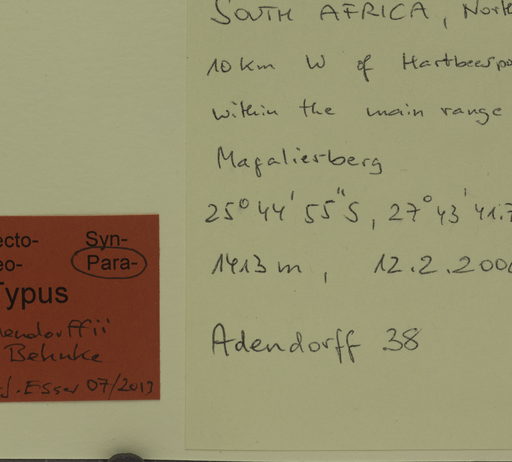 SOUTH AFRICA, North
10 km W of Hartbeespo
within the main range
Magaliesberg
25°44'55"S, 27°43'41.7
1413 m, 12.2.200
Adendorff 38
ecto- Syn-
eo- Para-
Typus
dendorffii
Behnke
J. Esser 07/2013